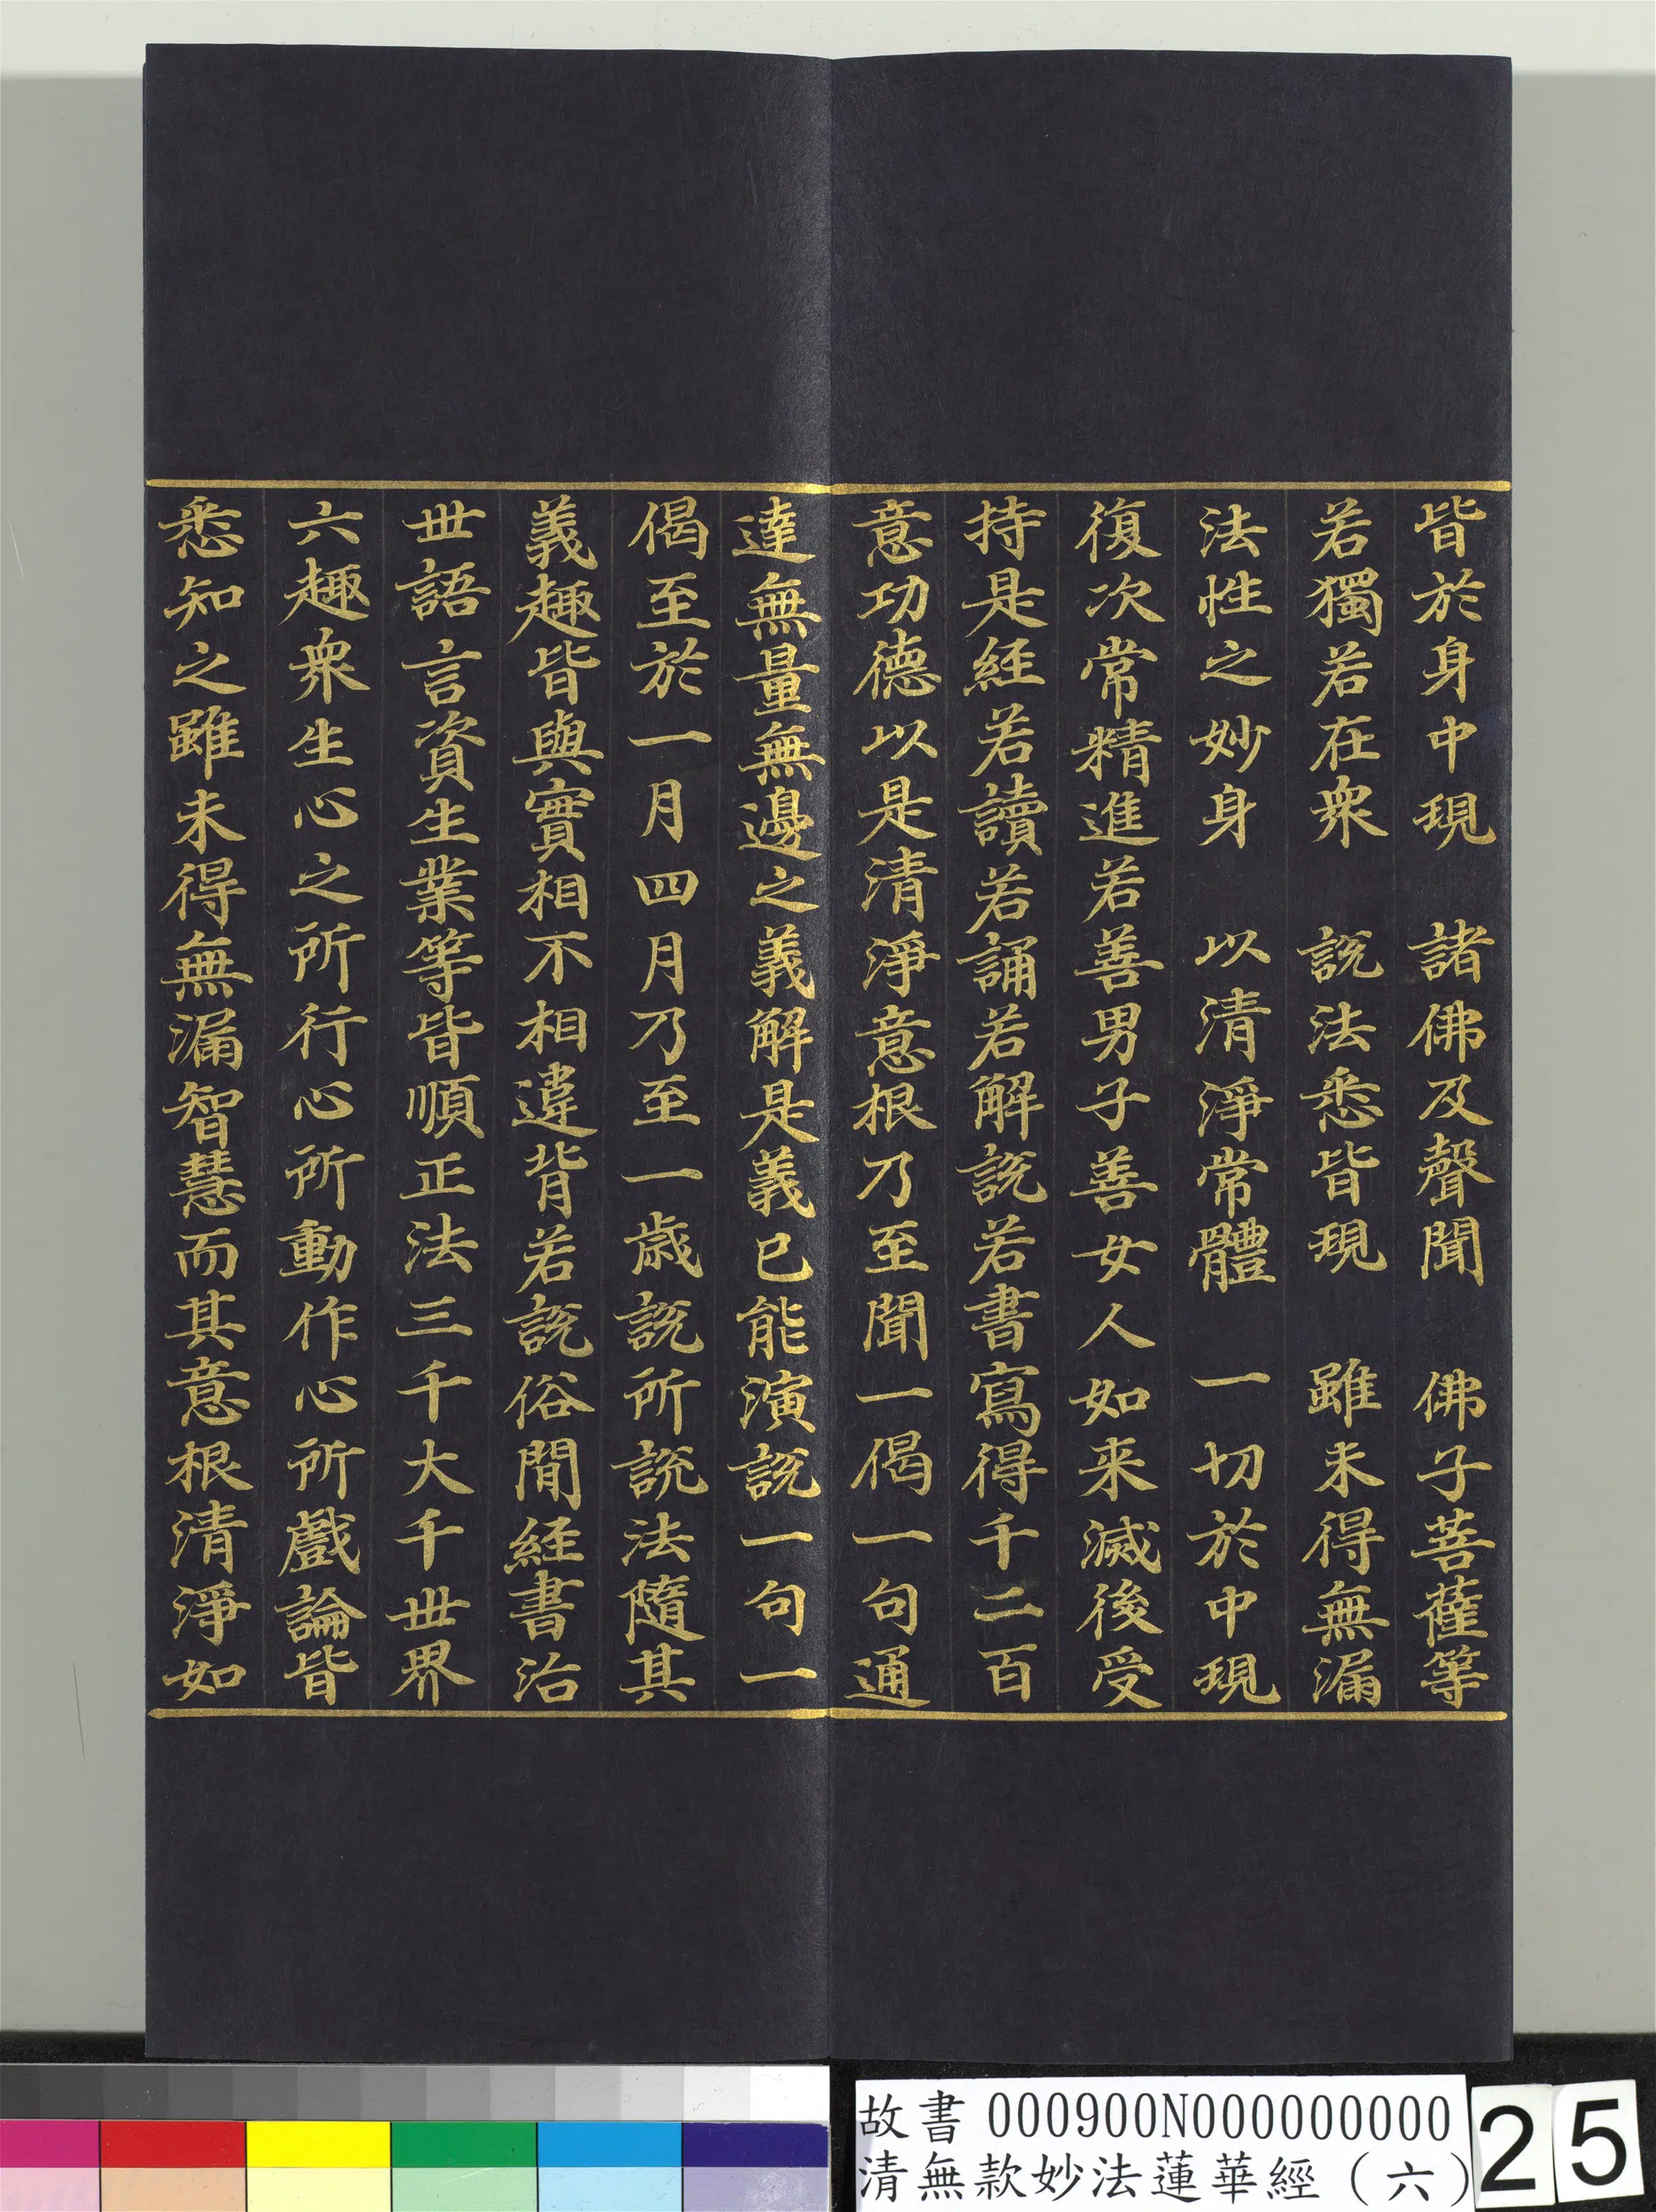 皆於身中現　諸佛及聲聞　佛子菩薩等
若獨若在衆　說法悉皆現　雖未得無漏
法性之妙身　以清淨常體　一切於中現
復次常精進若善男子善女人如来滅後受
持是經若讀若誦若解說若書寫得千二百
意功德以是清淨意根乃至聞一偈一句通
達無量無邊之義解是義已能演說一句一
偈至於一月四月乃至一歲說所說法隨其
義趣皆與實相不相違背若說俗間經書治
世語言資生業等皆順正法三千大千世界
六趣衆生心之所行心所動作心所戲論皆
悉知之雖未得無漏智慧而其意根清淨如
故書 000900N000000000
清無款妙法蓮華經（六）
25